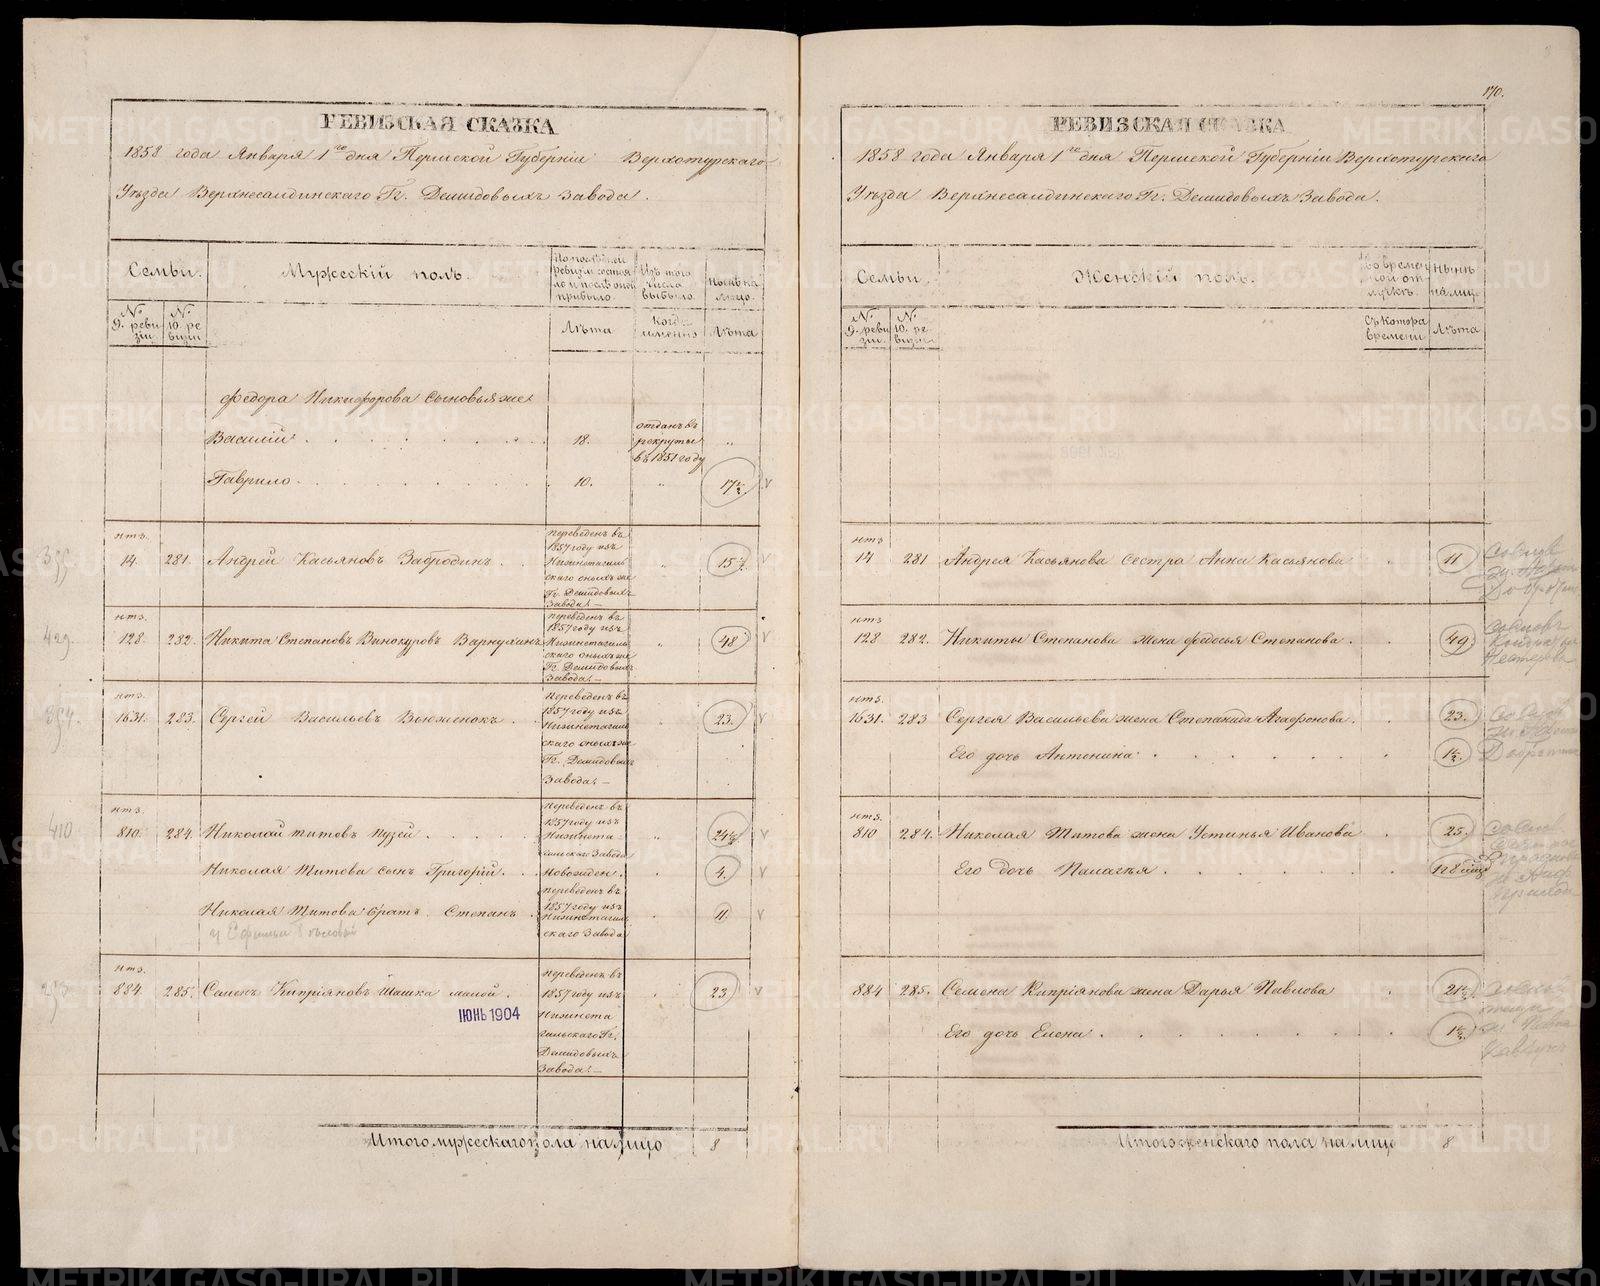 РЕВИЗСКАЯ СКАЗКА
1858 года Января 1го дня Пермской Губерніи Верхотурскаго
Уѣзда Верхнесалдинскаго Гг. Демидовыхъ Завода.
Семьи. Мужескій полъ. По послѣдней ревизіи состояло и послѣ оной прибыло. Изъ того числа выбыло. Нынѣ на лицо.
№ 9. ревизіи № 10. ревизіи Лѣта Когда именно Лѣта
Федора Никифорова сыновья же
Василій 18. отданъ въ рекруты въ 1851 году „
Гаврило 10. „ 17½. v
нтз.
14. 281. Андрей Касьяновъ Забродинъ переведенъ въ 1857 году изъ Нижнетагильскаго оныхъ же Гг. Демидовыхъ Завода. „ 15½. v
нтз.
128. 282. Никита Степановъ Винокуровъ Варнухинъ переведенъ въ 1857 году изъ Нижнетагильскаго оныхъ же Гг. Демидовыхъ Завода. „ 48 v
нтз.
1631. 283. Сергей Васильевъ Вьюженокъ Переведенъ въ 1857 году изъ Нижнетагильскаго оныхъ же Гг. Демидовыхъ Завода. 23. v
410
нтз.
810. 284. Николай Титовъ Пузей Переведенъ въ 1857 году изъ Нижнетагильскаго Завода „ 24½ v
Николая Титова сынъ Григорій. новорожден. 4. v
Николая Титова братъ Степанъ переведенъ въ 1857 году изъ Нижнетагильскаго Завода 11. v
нтз.
884. 285. Семенъ Кипріяновъ Шашка малой. переведенъ въ 1857 году изъ Нижнетагильскаго Гг. Демидовыхъ Завода. 23 v
ІЮНЬ 1904
Итого мужескаго пола на лицо 8
170.
РЕВИЗСКАЯ СКАЗКА
1858 года Января 1го дня Пермской Губерніи Верхотурскаго
Уѣзда Верхнесалдинскаго Гг. Демидовыхъ Завода.
Семьи. Женскій полъ. Во временной отлучкѣ. Нынѣ на лицо
№ 9. ревизіи № 10. ревизіи Съ котора времени Лѣта
нтз
14 281 Андрея Касьянова сестра Анна Касьянова 11
нтз
128 282. Никиты Степанова жена Федосья Степанова. 49.
нтз.
1631. 283 Сергея Васильева жена Степанида Агафонова. 23.
Его дочь Антонина 1½.
нтз.
810 284. Николая Титова жена Устинья Иванова 25.
Его дочь Палагѣя.
884 285. Семена Кипріянова жена Дарья Павлова 21½
Его дочь Елена. 1½.
Итого женскаго пола на лицо 8
METRIKI.GASO-URAL.RU